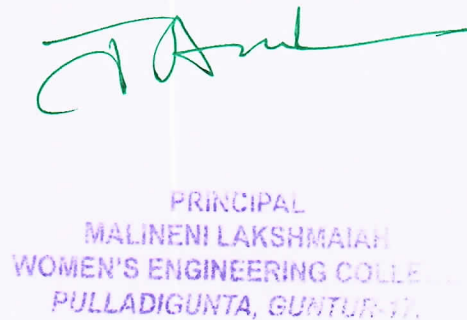 PRINCIPAL
MALINENI LAKSHMAIAH
WOMEN'S ENGINEERING COLLE
PULLADIGUNTA, GUNTUR-17.